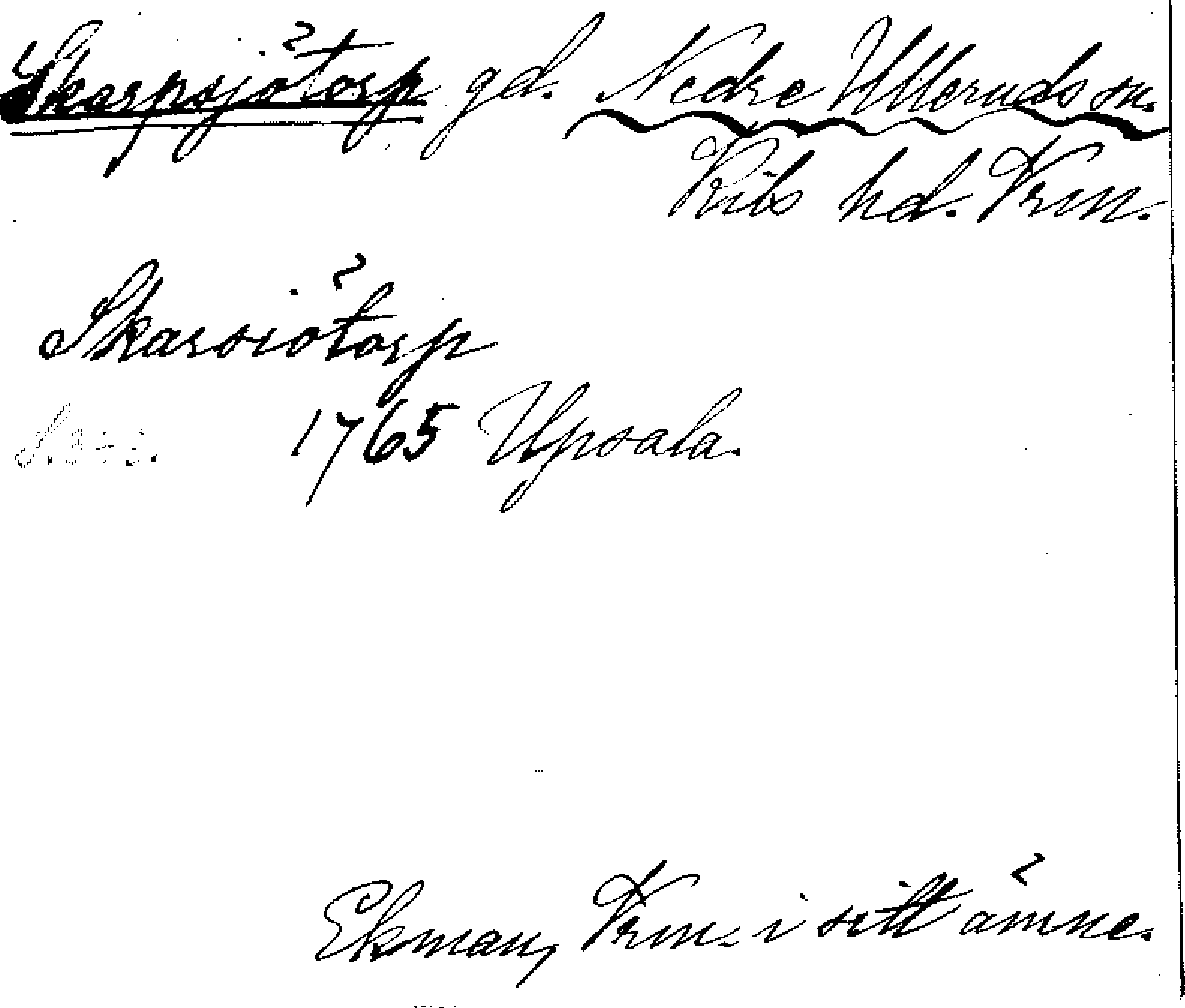 Skarpsjötorp gd. Nedre Ulleruds sn.
Kils hd. Vrm.
Skarsiötorp
1765 Upsala.
Ekman, Vrm. i sitt ämne.